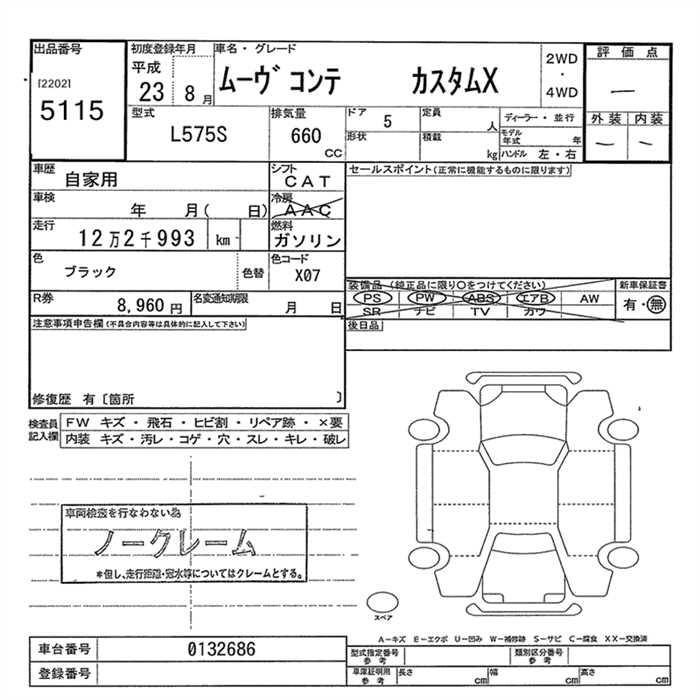 出品番号
[2202]
5115
初度登録年月
平成
23 8 月
車名・グレード
ムーヴ コンテ カスタムX
2WD
・
4WD
評 価 点
—
外 装 内 装
— —
型式
L575S
排気量
660
cc
ドア
5
形状
定員
人
積載
kg
ディーラー・並行
モデル年式 年
ハンドル 左・右
車歴
自家用
シフト
CAT
車検
年 月( 日)
冷房
AAC
走行
12万2千993 km
燃料
ガソリン
色
ブラック
色替
色コード
X07
R券
8,960 円
名変通知期限
月 日
セールスポイント(正常に機能するものに限ります)
装備品(純正品に限り○をつけてください)
PS PW ABS エアB AW
SR ナビ TV カワ
新車保証書
有・無
後日品
注意事項申告欄(不具合内容等は具体的に記入して下さい)
修復歴 有〔箇所 〕
検査員
記入欄
FW キズ・飛石・ヒビ割・リペア跡・×要
内装 キズ・汚レ・コゲ・穴・スレ・キレ・破レ
車両検査を行なわない為
ノークレーム
*但し、走行距離・冠水等についてはクレームとする。
スペア
A—キズ E—エクボ U—凹み W—補修跡 S—サビ C—腐食 XX—交換済
車台番号
0132686
登録番号
型式指定番号
参 考
類別区分番号
参 考
車庫証明用
参 考
長さ cm
幅 cm
高さ cm